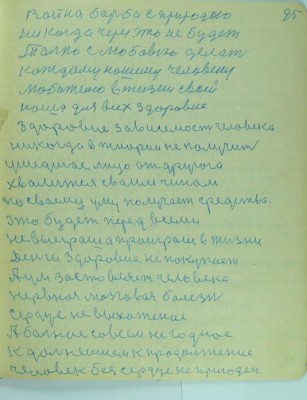 95
Война борба с природою
никогда через это не будет
Только с любовью делать
каждому нашему человеку
любителю в жизни своей
наша для всех здоровие
Здоровие зависимост человека
никогда в теории не получит
умершее лицо от другога
хвалится своим чинам
по своему уму получает средства.
Это будет перед всеми
не выиграш а проиграш в жизни
Денги здоровие не покупают
А ум заставляет человека
нервная мозговая болезн
Сердце не выхоженое
А больное совсем не годное
к далнейшем к продолжение
человек без сердце не пригоден